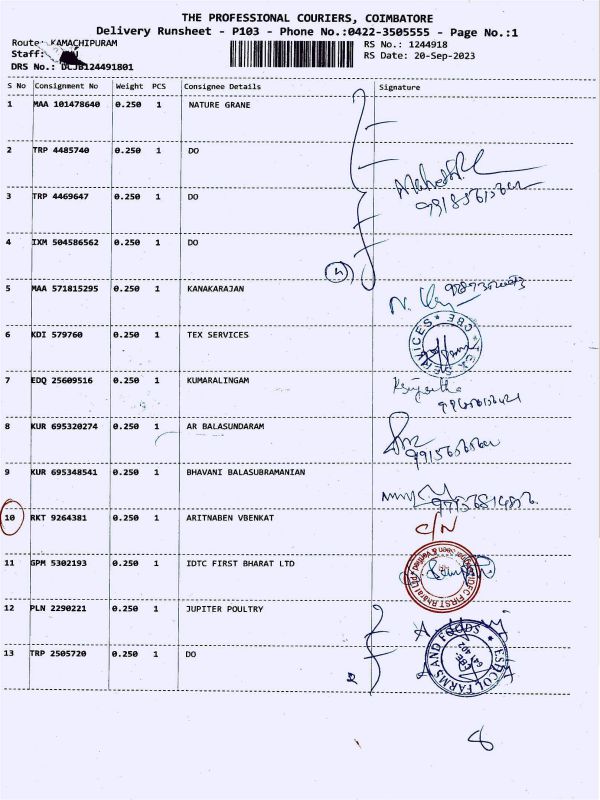 THE PROFESSIONAL COURIERS, COIMBATORE
Delivery Runsheet - P103 - Phone No.:0422-3505555 - Page No.:1
Route: KAMACHIPURAM
RS No.: 1244918
Staff:
RS Date: 20-Sep-2023
DRS No.: DCJB124491801
S No Consignment No Weight PCS Consignee Details Signature
1 MAA 101478640 0.250 1 NATURE GRANE
2 TRP 4485740 0.250 1 DO
3 TRP 4469647 0.250 1 DO
4 IXM 504586562 0.250 1 DO
4
5 MAA 571815295 0.250 1 KANAKARAJAN
6 KDI 579760 0.250 1 TEX SERVICES
TEX SERVICES * CBE *
7 EDQ 25609516 0.250 1 KUMARALINGAM
8 KUR 695320274 0.250 1 AR BALASUNDARAM
9 KUR 695348541 0.250 1 BHAVANI BALASUBRAMANIAN
10 RKT 9264381 0.250 1 ARITNABEN VBENKAT
C/N
11 GPM 5302193 0.250 1 IDTC FIRST BHARAT LTD
IDFC FIRST Bharat Ltd
12 PLN 2290221 0.250 1 JUPITER POULTRY
13 TRP 2505720 0.250 1 DO
2
ESHCOL FARMS AND FOODS
8